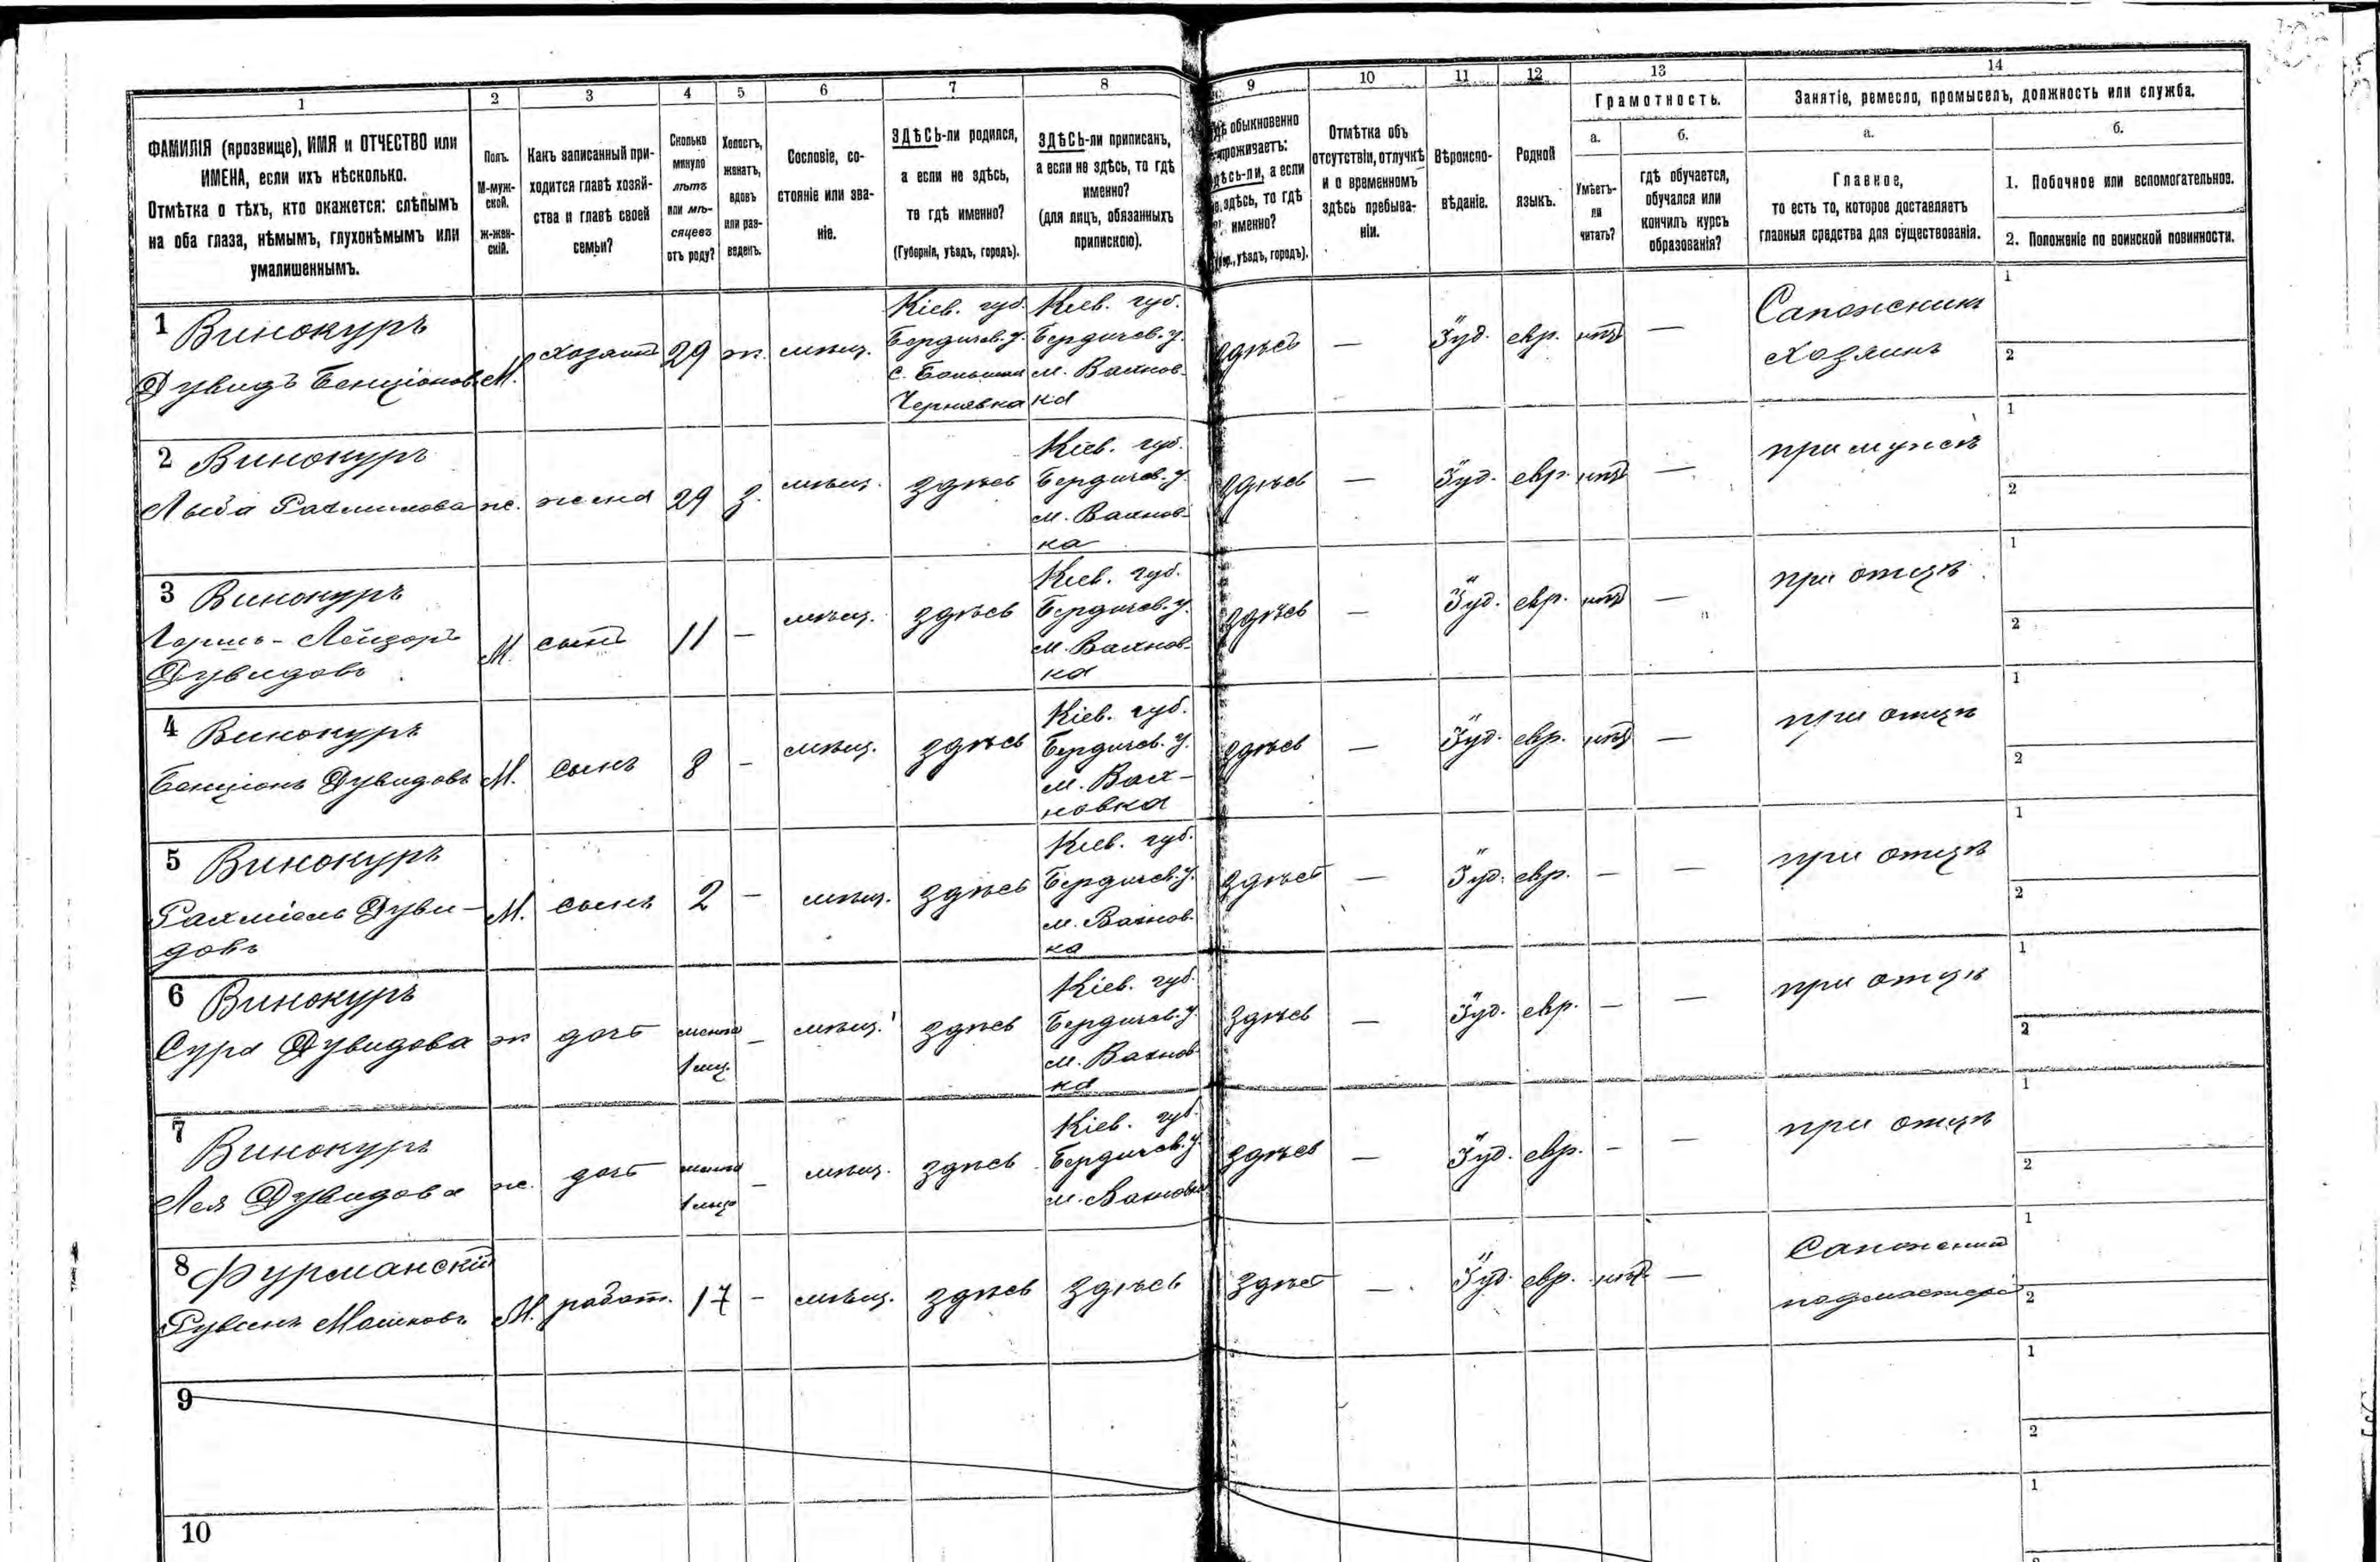 1 2 3 4 5 6 7 8 9 10 11 12 13 14
ФАМИЛІЯ (прозвище), ИМЯ и ОТЧЕСТВО или
ИМЕНА, если ихъ нѣсколько.
Отмѣтка о тѣхъ, кто окажется: слѣпымъ
на оба глаза, нѣмымъ, глухонѣмымъ или
умалишеннымъ.
Полъ.
М-муж-
ской.
Ж-жен-
скій.
Какъ записанный при-
ходится главѣ хозяй-
ства и главѣ своей
семьи?
Сколько
минуло
лѣтъ
или мѣ-
сяцевъ
отъ роду?
Холостъ,
женатъ,
вдовъ
или раз-
веденъ.
Сословіе, со-
стояніе или зва-
ніе.
ЗДѢСЬ-ли родился,
а если не здѣсь,
то гдѣ именно?
(Губернія, уѣздъ, городъ).
ЗДѢСЬ-ли приписанъ,
а если не здѣсь, то гдѣ
именно?
(для лицъ, обязанныхъ
припискою).
обыкновенно
проживаетъ:
а если
здѣсь, то гдѣ
именно?
уѣздъ, городъ).
Отмѣтка объ
отсутствіи, отлучкѣ
и о временномъ
здѣсь пребыва-
ніи.
Вѣроиспо-
вѣданіе.
Родной
языкъ.
Грамотность.
а.
Умѣетъ-
ли
читать?
б.
гдѣ обучается,
обучался или
кончилъ курсъ
образованія?
Занятіе, ремесло, промыселъ, должность или служба.
а.
Главное,
то есть то, которое доставляетъ
главныя средства для существованія.
б.
1. Побочное или вспомогательное.
2. Положеніе по воинской повинности.
1 Винокуръ
Дувидъ Бенціоновъ
М.
хозяинъ
29
ж.
мѣщ.
Кіев. губ.
Бердичев. у.
с. Большая
Чернявка
Кіев. губ.
Бердичев. у.
м. Вахнов-
ка
здѣсь
—
Іуд.
евр.
нѣтъ
—
Сапожникъ
хозяинъ
1
2
2 Винокуръ
Рахмилова
ж.
жена
29
з.
мѣщ.
здѣсь
Кіев. губ.
Бердичев. у.
м. Вахнов-
ка
здѣсь
—
Іуд.
евр.
нѣтъ
—
при мужѣ
1
2
3 Винокуръ
Гершъ-Лейзоръ
Дувидовъ
М.
сынъ
11
—
мѣщ.
здѣсь
Кіев. губ.
Бердичев. у.
м. Вахнов-
ка
здѣсь
—
Іуд.
евр.
нѣтъ
—
при отцѣ
1
2
4 Винокуръ
Бенціонъ Дувидовъ
М.
сынъ
8
—
мѣщ.
здѣсь
Кіев. губ.
Бердичев. у.
м. Вах-
новка
здѣсь
—
Іуд.
евр.
нѣтъ
—
при отцѣ
1
2
5 Винокуръ
Рахміель Дуви-
довъ
М.
сынъ
2
—
мѣщ.
здѣсь
Кіев. губ.
Бердичев. у.
м. Вахнов-
ка
здѣсь
—
Іуд.
евр.
—
—
при отцѣ
1
2
6 Винокуръ
Сура Дувидова
ж
дочь
менѣе
1 мѣс.
—
мѣщ.
здѣсь
Кіев. губ.
Бердичев. у.
м. Вахнов-
ка
здѣсь
—
Іуд.
евр.
—
—
при отцѣ
1
2
7
Винокуръ
Лея Дувидова
ж.
дочь
менѣе
1 мѣс.
—
мѣщ.
здѣсь
Кіев. губ.
Бердичев. у.
м. Вахновка
здѣсь
—
Іуд.
евр.
—
—
при отцѣ
1
2
8 Фурманскій
Рувинъ Мошковъ
М.
работ.
17
—
мѣщ.
здѣсь
здѣсь
здѣсь
—
Іуд.
евр.
нѣтъ
—
Сапожный
подмастерье
1
2
9
1
2
10
1